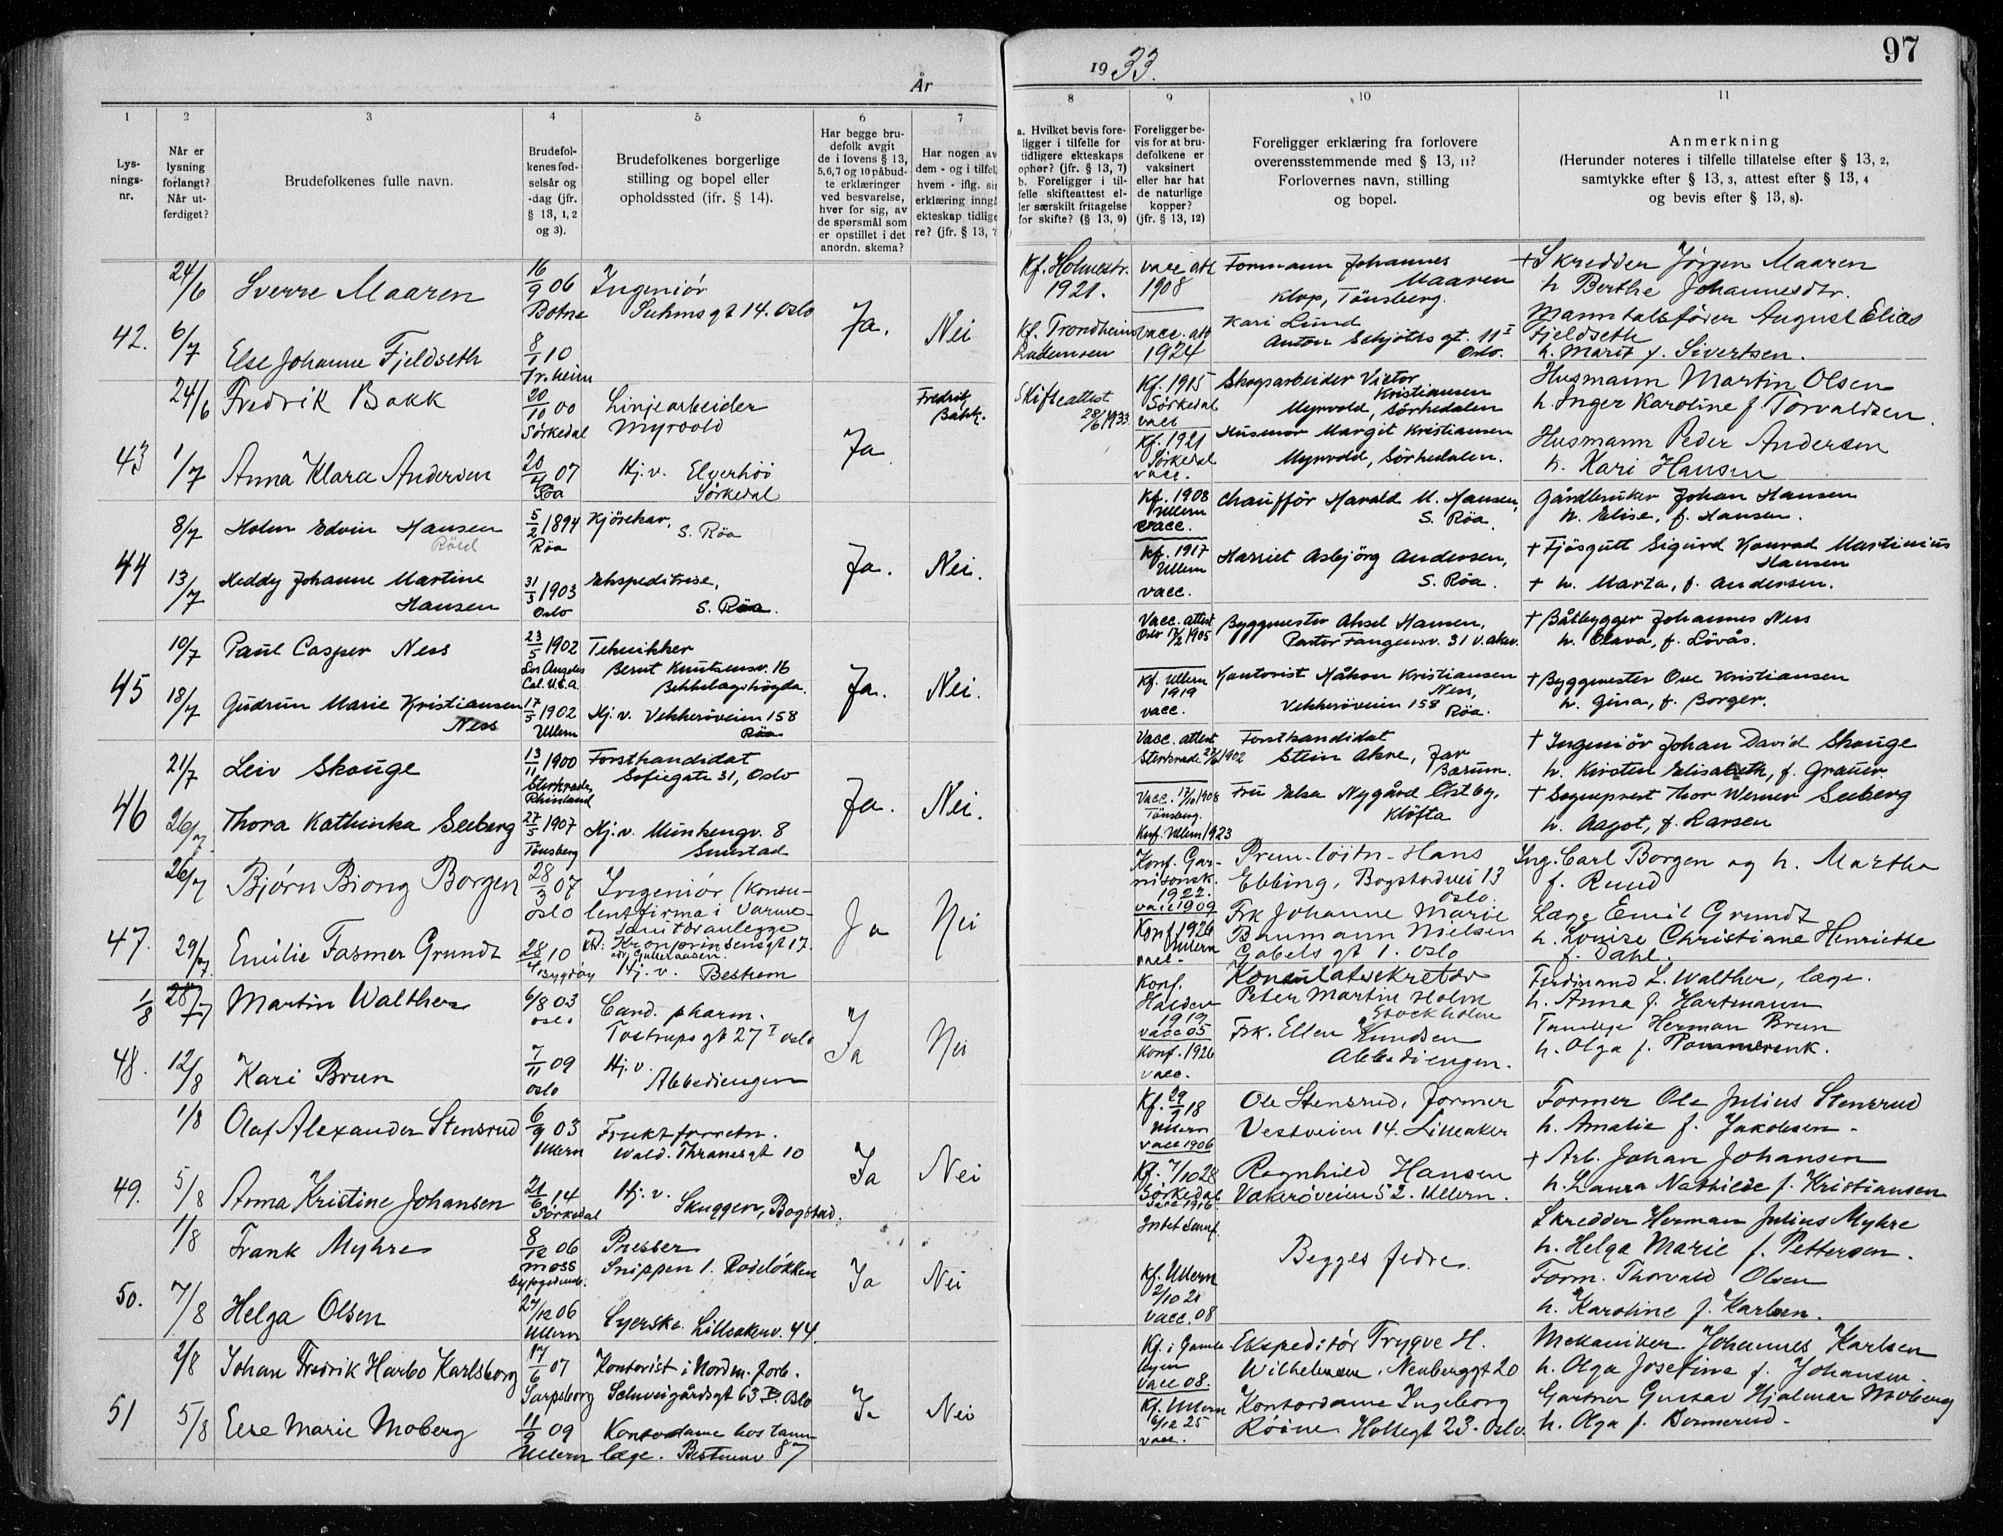 År 1933.
97
1 2 3 4 5 6 7 8 9 10 11
Lys-
nings-
nr.
Når er
lysning
forlangt?
Når ut-
ferdiget?
Brudefolkenes fulle navn.
Brudefol-
kenes fød-
selsår og
-dag (jfr.
§ 13, 1, 2
og 3).
Brudefolkenes borgerlige
stilling og bopel eller
opholdssted (ifr. § 14).
Har begge bru-
defolk avgit
de i lovens § 13,
5,6,7 og 10 påbud-
te erklæringer
ved besvarelse,
hver for sig, av
de spørsmål som
er opstillet i det
anordn. skema?
Har nogen av
dem - og i tilfel,
hvem - iflg. si
erklæring inngå
ekteskap tidlige
re? (jfr. § 13, 7
a. Hvilket bevis fore-
ligger i tilfelle for
tidligere ekteskaps
ophør? (jfr. § 13, 7)
b. Foreligger i til-
felle skifteattest el-
ler særskilt fritagelse
for skifte? (§ 13, 9)
Foreligger be-
vis for at bru-
defolkene er
vaksinert
eller har hat
de naturlige
kopper?
(jfr. § 13, 12)
Foreligger erklæring fra forlovere
overensstemmende med § 13, 11?
Forlovernes navn, stilling
og bopel.
Anmerkning
(Herunder noteres i tilfelle tillatelse efter § 13, 2,
samtykke efter § 13, 3, attest efter § 13, 4
og bevis efter § 13, 8).
42.
24/6
6/7
Sverre Maaren
16/9 06
Botne
Ingeniør
Suhmsgt 14. Oslo
Else Johanne Fjeldseth
8/1 10
Tr.heim
Ja.
Nei
Kf. Holmestr.
1921.
Kf. Trondheim
vacc att
1908
vacc. att
1924
Formann Johannes
Maaren
Klop, Tönsberg.
Kari Lund
Anton Schjøtts gt. 11 I
Oslo.
+ Skredder Jörgen Maaren
h. Berthe Johannesdtr.
August Elias
Fjeldseth
h. Marit f. Sivertsen.
43
24/6
1/7
Fredrik Bakk
20/10 00
Sørkedal
Linjearbeider
Myrvold
Anna Klara Andersen
20/4 07
Röa
Hj. v. Elverhöi
Sørkedal
Ja
Fredrik
Bakk.
Skifteattest
28/6 1933
Kf. 1915
Sørkedal
vacc
Kf. 1921
Sørkedal
vacc.
Skogsarbeider Victor
Kristiansen
Myrvold, Sørkedalen
Husmor Margit Kristiansen
Myrvold, Sørkedalen.
Husmann Martin Olsen
h. Inger Karoline f. Torvaldsen.
Husmann Peder Andersen
h. Kari Hansen
44
8/7
13/7
Holm Edvin Hansen
5/2 1894
Röa
Kjörekar,
S. Röa
Heddy Johanne Martine
Hansen
31/3 1903
Oslo
Ekspeditrise,
S. Röa.
Ja.
Nei.
Kf. 1908
Ullern
vacc.
Kf. 1917
Ullern
vacc.
Chauffør Harald M. Hansen,
S. Röa.
Harriet Asbjörg Andersen,
S. Röa.
Gårdbruker Johan Hansen
h. Elise, f. Hansen.
+ Fjösgutt Sigurd Konrad Martinius
Hansen
+ h. Marta, f. Andersen.
45
10/7
18/7
Paul Casper Ness
23/5 1902
Los Angeles
Cal. U.S.A.
Tekniker
Bernt Knutsensv. 16
Bekkelagshøgda.
Gudrun Marie Kristiansen
Ness
17/5 1902
Ullern
Hj. v. Vekkerøveien 158
Röa
Ja.
Nei.
Vacc. attest
Oslo 17/2 1905
Kf. Ullern
1919
vacc.
Byggmester Aksel Hansen,
Pastor Fangensv. 31 V. Aker.
Kontorist Håkon Kristiansen
Ness,
Vekkerøveien 158 Röa.
+ Båtbygger Johannes Ness
h. Olava, f. Lövås.
+ Byggmester Ove Kristiansen
h. Gina, f. Borger.
46
21/7
26/7
Leiv Skouge
13/11 1900
Sterkrade
Rhinland
Forstkandidat
Sofiegate 31, Oslo
Thora Kathinka Seeberg
27/5 1907
Tönsberg
Hj. v. Munkengv. 8
Smestad
Ja.
Nei.
Vacc. attest
Sterkrade 27/6 1902
Vacc. 17/6 1908
Tönsberg.
Konf. Ullern 1923
Forstkandidat
Stein Akre, Jar
Bærum.
Fru Elsa Nygård Östby,
Klöfta
+ Ingeniör Johan David Skouge
h. Kirsten Elisabeth, f. Grauer
+ Sogneprest Thor Werner Seeberg
h. Aagot, f. Larsen
47.
26/7
29/7
Bjørn Biong Borgen
28/3 07
Oslo
Ingeniør (konsu-
lentfirma i Varme-
sanitæranlegge
Kronprinsensgt 17.
Emilie Fasmer Grundt
28/4 10
Bygdøy
Hj. v. Bestum
Ja
Nei
Konf. Gar-
nisonsk.
1922.
vacc 1909
Konf. 1926
Ullern
vacc.
Prem. løitn. Hans
Ebbing, Bogstadvei 13
Oslo.
Frk Johanne Marie
Baumann Nielsen
Gabels gt 1. Oslo
Ing. Carl Borgen og h. Martha
f. Ruud
Læge Emil Grundt
h. Louise Christiane Henriette
f. Dahl.
48.
1/8
28/7
12/8
Martin Walther
6/8 03
Oslo
Cand. pharm.
Tostrups gt 27 I Oslo
Kari Brun
7/11 09
Oslo
Hj. v.
Abbediengen
Ja
Nei
Konf.
Halden
1919
vacc 05
Konf. 1926
vacc.
Konsulatsekretær
Peter Martin Holm
Stockholm
Frk. Ellen Knudsen
Abbediengen.
Ferdinand L. Walther, læge.
h. Anna f. Hartmann
Tannlæge Herman Brun
h. Olga f. Pommerenk.
49.
1/8
5/8
Olaf Alexander Stensrud
6/9 03
Ullern
Fruktforretn.
Wald. Thranesgt 10
Anna Kristine Johansen
21/6 14
Sørkedal
Hj. v.
Skuggen, Bogstad.
Ja
Nei
Kf. 29/9 18
Ullern
vacc 1906
Kf. 7/10 28
Sørkedal
vacc 1916
Ole Stensrud, Former
Vestveien 14. Lilleaker
Ragnhild Hansen
Vækerøveien 52. Ullern.
Former Ole Julius Stensrud
h. Amalie f. Jakobsen.
+ Arb. Johan Johansen
h. Laura Mathilde f. Kristiansen
50.
1/8
7/8
Frank Myhre
8/12 06
Moss
byggedøm.
Presser
Snippen 1. Rodeløkken
Helga Olsen
27/12 06
Ullern
Syerske Lilleakerv. 44.
Ja
Nei
Kf. Ullern
2/10 21
vacc. 08
Begges fedre.
Skredder Herman Julius Myhre
h. Helga Marie f. Pettersen.
Form. Thorvald Olsen
h. Karoline f. Karlsen.
51
2/8
5/8
Johan Fredrik Harbo Karlsborg
17/6 07
Sarpsborg
Kontorist i Nordm. forb.
Schweigårdsgt 63 B. Oslo
Else Marie Moberg
11/9 09
Ullern
Kontordame hos tann-
læge. Bestumv 87
Ja
Nei
Kf. i Gamle
Aker
vacc 08.
Kf. Ullern
6/12 25
vacc.
Ekspeditör Trygve H.
Wilhelmsen. Neuberggt 20
Kontordame Ingeborg
Røine Holtegt 23. Oslo.
Mekaniker Johannes Karlsen
h. Olga Josefine f. Johansen.
Gartner Gustav Hjalmar Moberg
h. Olga f.